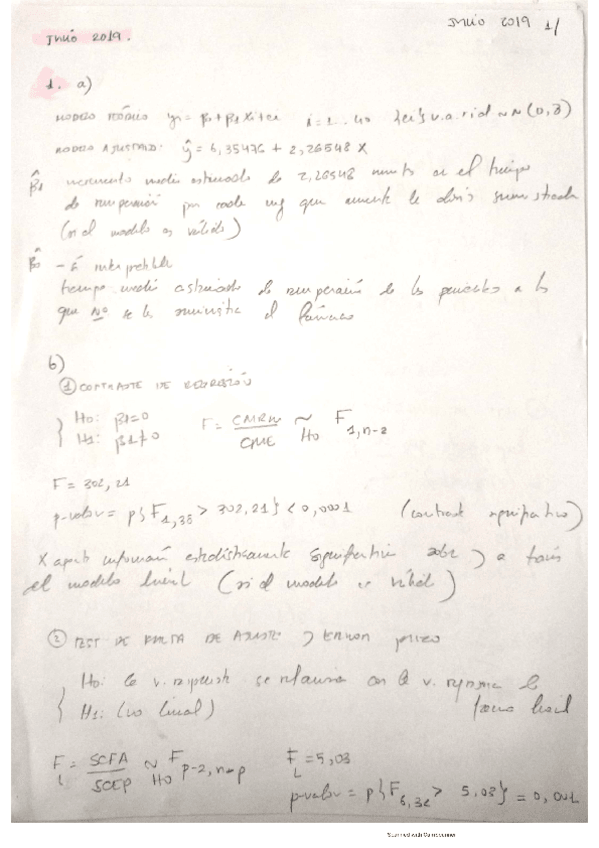 Junio 2019 1/
Junio 2019.
1. a)
MODELO TEÓRICO yi = β0+β1xi+εi i=1...40 {εi} v.a. N(0,
MODELO AJUSTADO: ŷ = 6,35476 + 2,26548 X
β̂1 incremento medio estimado de 2,26548 en el tiempo
de recuperación por cada mg que aumente la dosis suministrada
(si el modelo es válido)
β̂0 - interpretable
tiempo medio estimado de recuperación de los pacientes a los
que NO se les suministra el fármaco
b)
① CONTRASTE DE REGRESIÓN
H0: β1=0 F = CMRM/CME ~H0 F1,n-2
H1: β1≠0
F = 302,21
p-valor = p{F1,38 > 302,21} < 0,0001 (contraste significativo)
X aporta información estadísticamente significativa sobre y a través
el modelo lineal (si el modelo es válido)
② TEST DE FALTA DE AJUSTE y ERROR puro
H0: la v. se relaciona con la v. respuesta de
forma lineal
H1: (no lineal)
FL = SCFA/SCEP ~H0 Fp-2,n-p FL = 5,03
p-valor = p{F6,32 > 5,03} = 0,001
Scanned with CamScanner